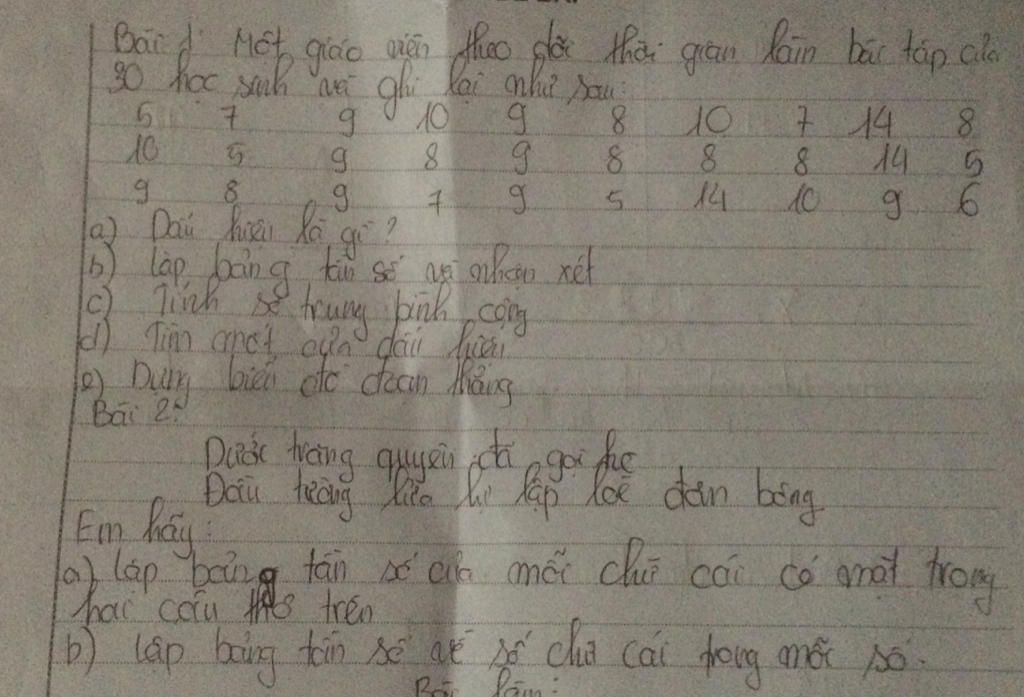 Bài 1: Một giáo viên theo dõi thời gian làm bài tập của
30 học sinh và ghi lại như sau:
5 7 9 10 9 8 10 7 14 8
10 5 9 8 9 8 8 8 14 5
9 8 9 7 9 5 14 10 9 6
a) Dấu hiệu là gì?
b) lập bảng tần số và nhận xét
c) Tính số trung bình cộng
d) Tìm mốt của dấu hiệu
e) Dựng biểu đồ đoạn thẳng
Bài 2:
Dưới trăng quyên đã gọi hè
Đầu tường lửa lựu lập loè đơn bông
Em hãy:
a) lập bảng tần số của mỗi chữ cái có mặt trong
hai câu thơ trên
b) lập bảng tần số về số chữ cái trong mỗi số.
Bài làm: